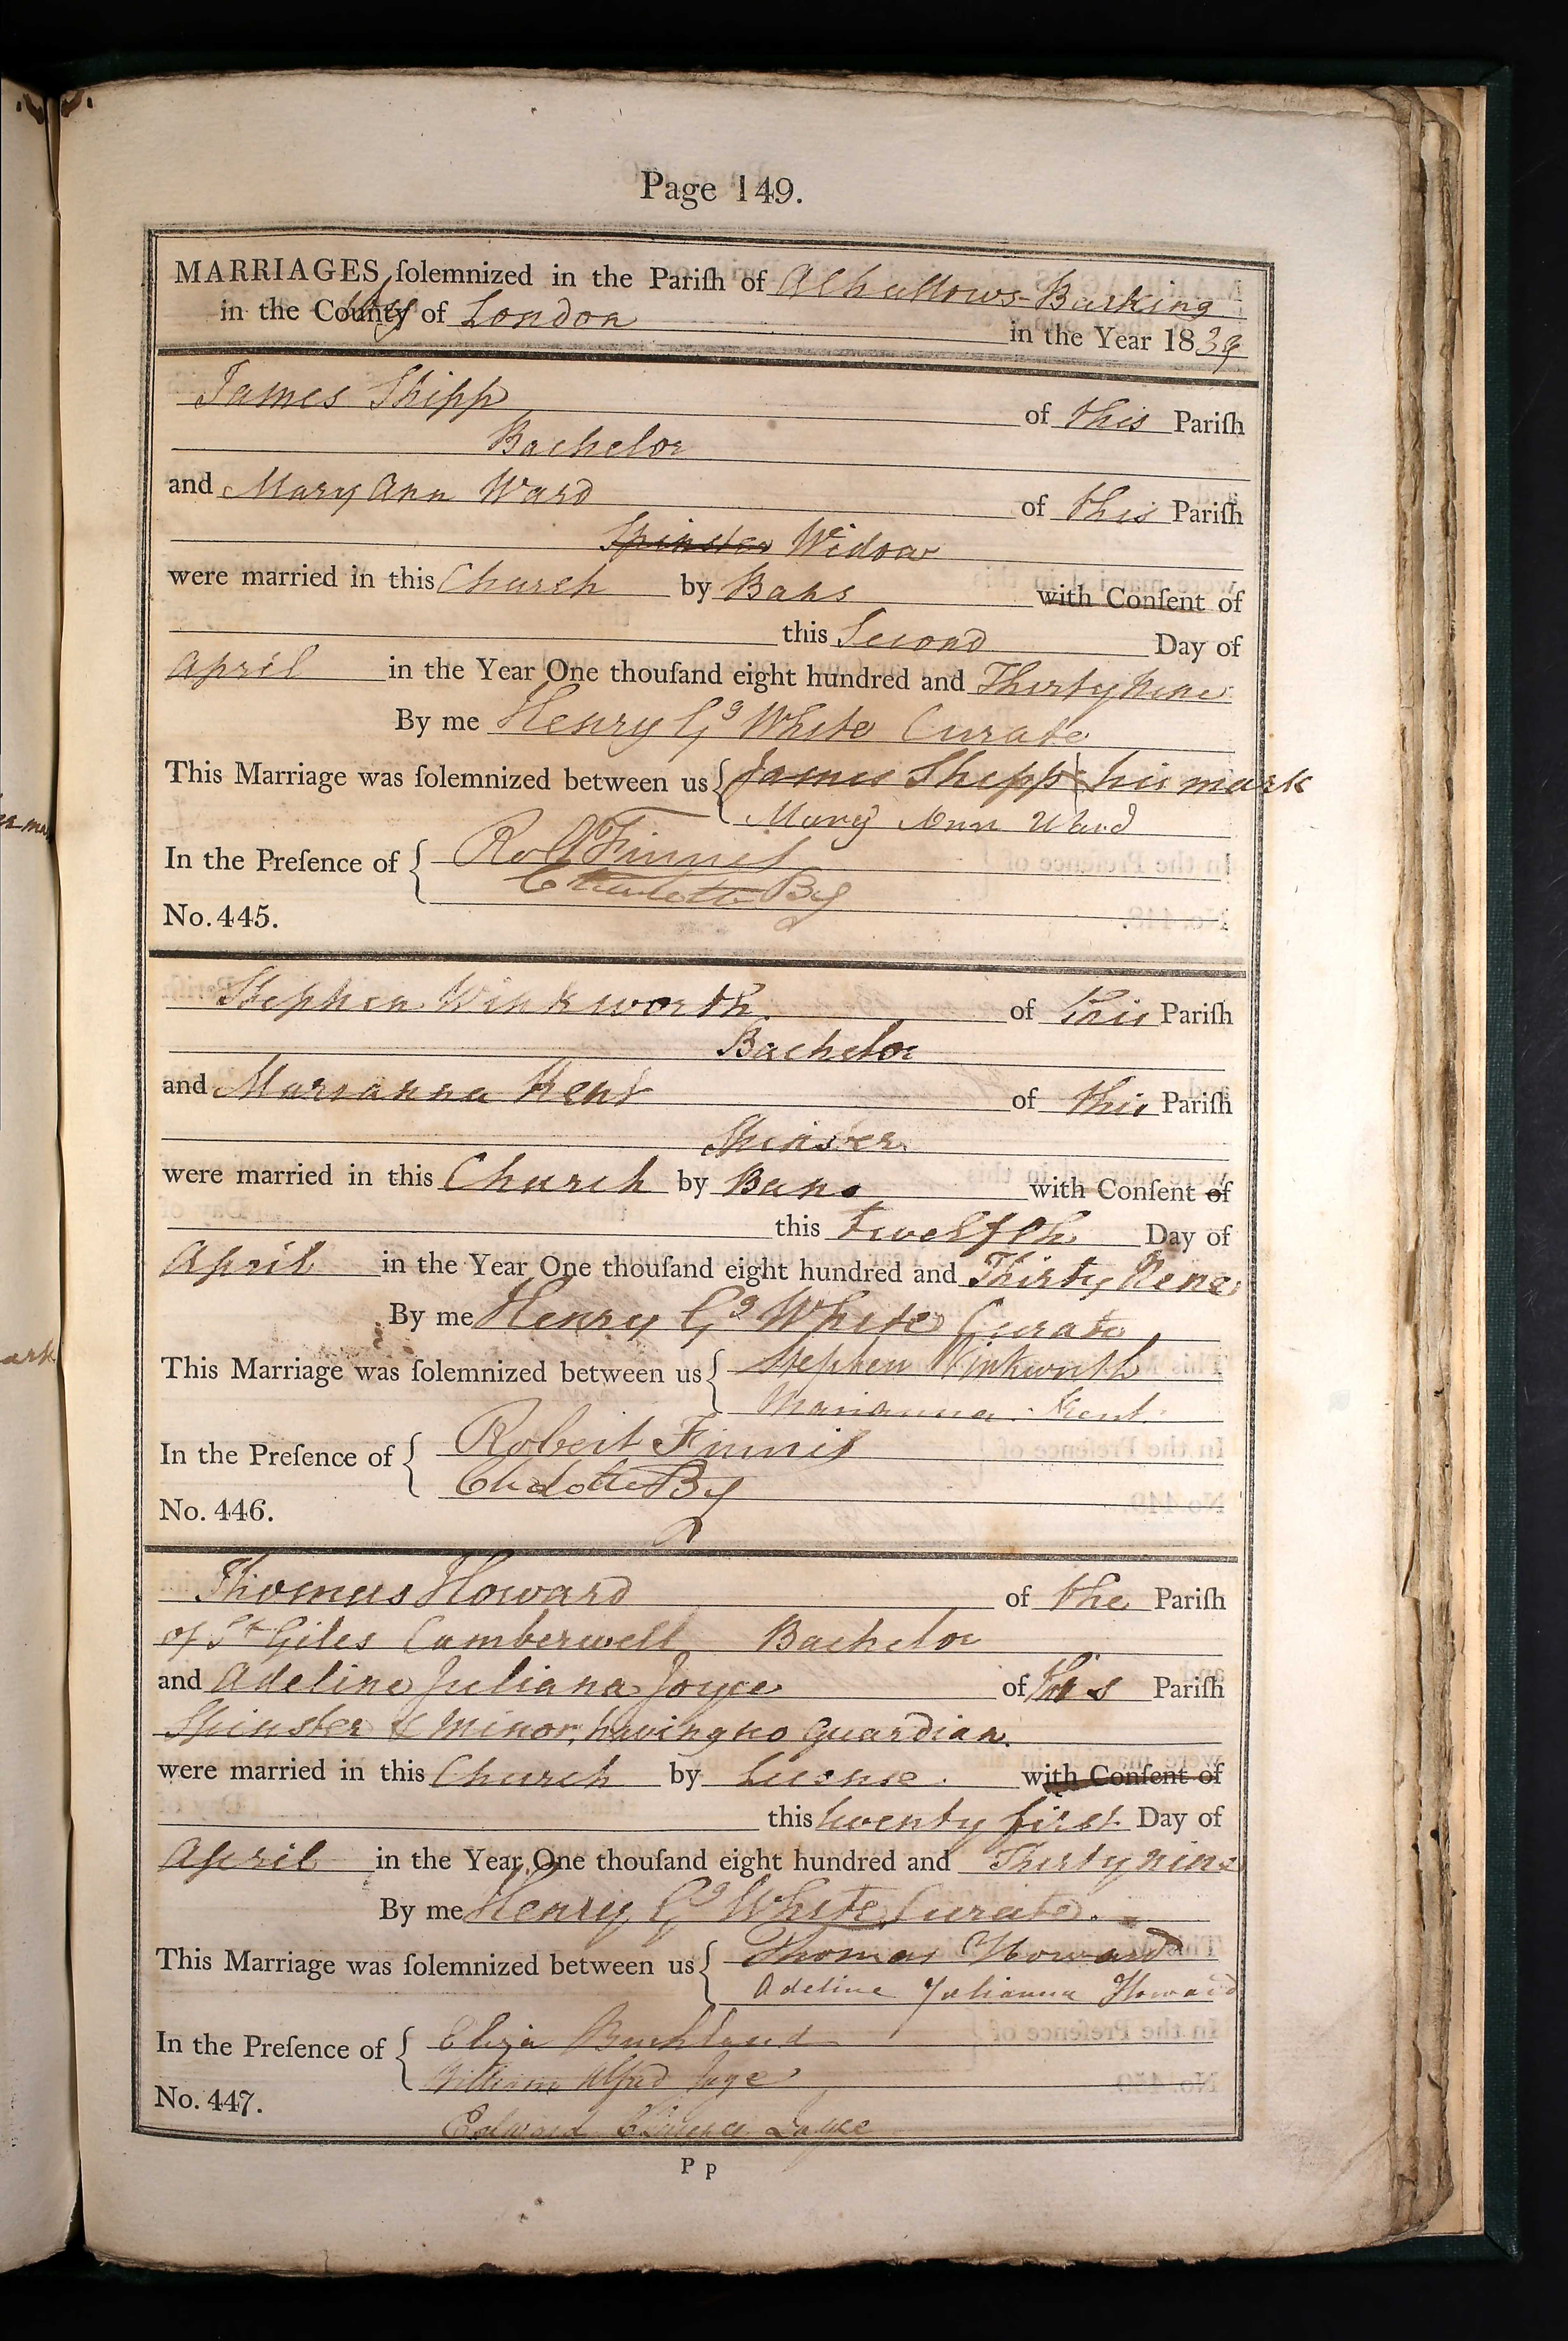 Page 149.
MARRIAGES ſolemnized in the Pariſh of Alhallows-Barking
in the County City of London
in the Year 1839
James Shipp of this Pariſh
Bachelor
and Mary Ann Ward of this Pariſh
Spinster Widow
were married in this Church by Bans with Conſent of
this Second Day of
April in the Year One thouſand eight hundred and Thirty Nine
By me Henry Go White Curate
This Marriage was ſolemnized between us { James Shipp X his mark
Mary Ann Ward
In the Preſence of { Robt Finnis
Charlotte By
No. 445.
Stephen Winkworth of this Pariſh
Bachelor
and Marianna Kent of this Pariſh
Spinster
were married in this Church by Bans with Conſent of
this Twelfth Day of
April in the Year One thouſand eight hundred and Thirty Nine
By me Henry Go White Curate
This Marriage was ſolemnized between us { Stephen Winkworth
Marianna Kent
In the Preſence of { Robert Finnis
Charlotte By
No. 446.
Thomas Howard of the Pariſh
of St Giles Camberwell Bachelor
and Adeline Juliana Joyce of this Pariſh
Spinster & Minor, having no Guardian.
were married in this Church by License. with Conſent of
this twenty first Day of
April in the Year One thouſand eight hundred and Thirty nine
By me Henry Go White Curate.
This Marriage was ſolemnized between us { Thomas Howard
Adeline Julianna Howard
In the Preſence of { Eliza Buckland
William Alfred Joyce
No. 447.
Edward Joyce
P p